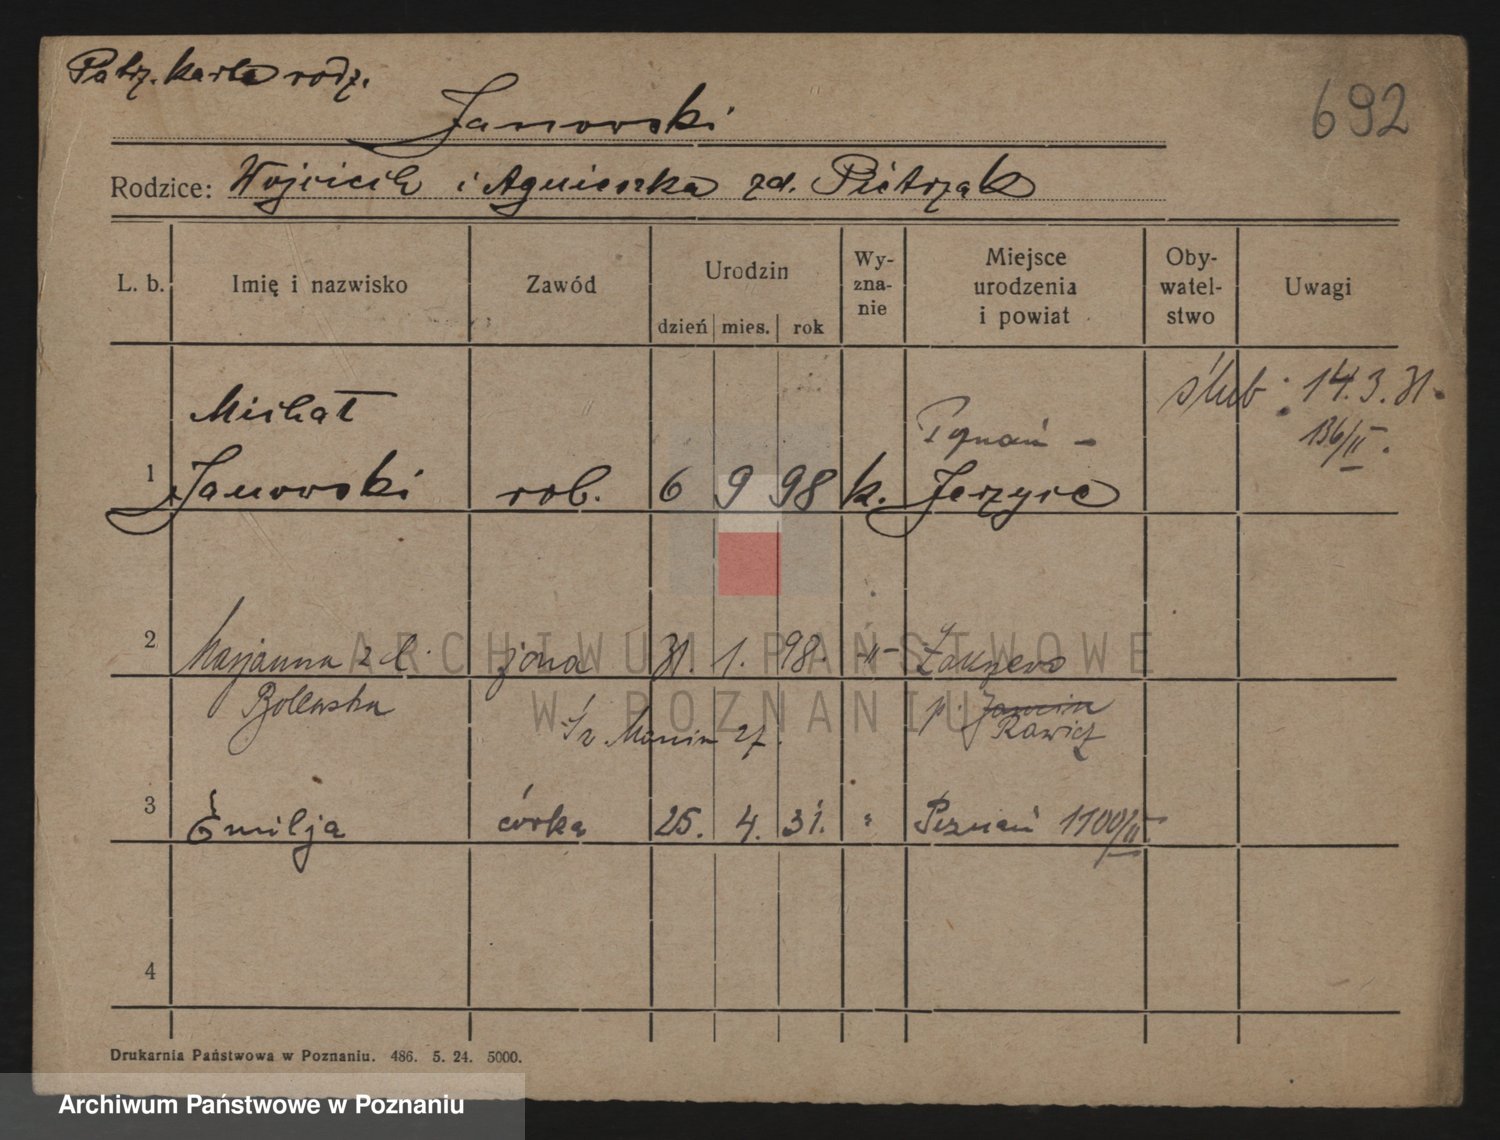 Patrz. karta rodz.
692
Janowski
Rodzice: Wojciech i Agnieszka zd. Pietrzak
L. b.
Imię i nazwisko
Zawód
Urodzin
dzień mies. rok
Wy-
zna-
nie
Miejsce
urodzenia
i powiat
Oby-
watel-
stwo
Uwagi
ślub: 14.3.31.
136/II.
1
Michał
Janowski
rob.
6 9 98
k.
Poznań -
Jerzyce
2
Marjanna zd.
żona
31. 1. 98.
-"-
Zakrzewo
p. Jarocin
Rawicz
Św. Marcin 27.
3
Emilja
córka
25. 4. 31.
"
Poznań 1100/II.
4
Drukarnia Państwowa w Poznaniu. 486. 5. 24. 5000.
ARCHIWUM PAŃSTWOWE
W POZNANIU
Archiwum Państwowe w Poznaniu